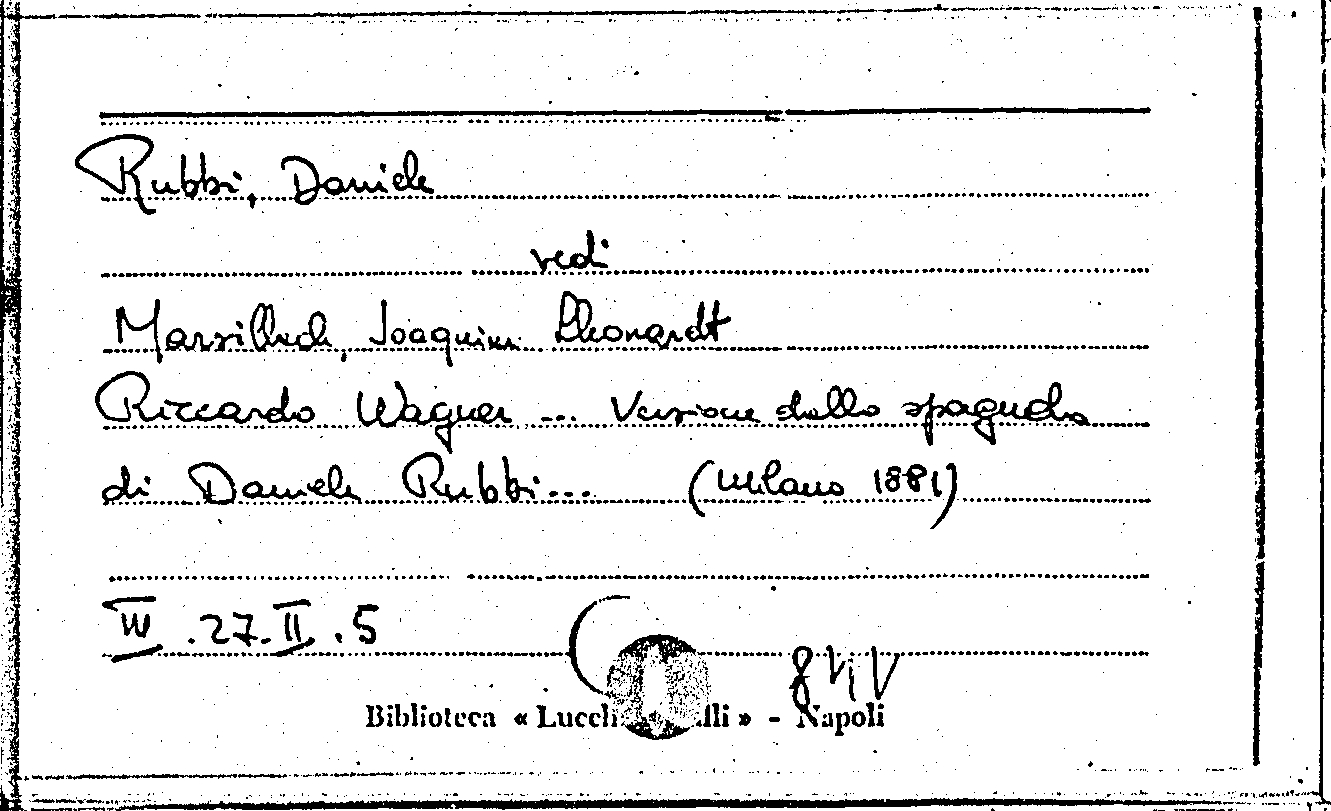 Rubbi, Daniele
vedi
Marsillach, Joaquim Lleonardt
Riccardo Wagner ... Versione dallo spagnolo
di Daniele Rubbi... (Milano 1881)
III.27.II.5
Biblioteca « - Napoli